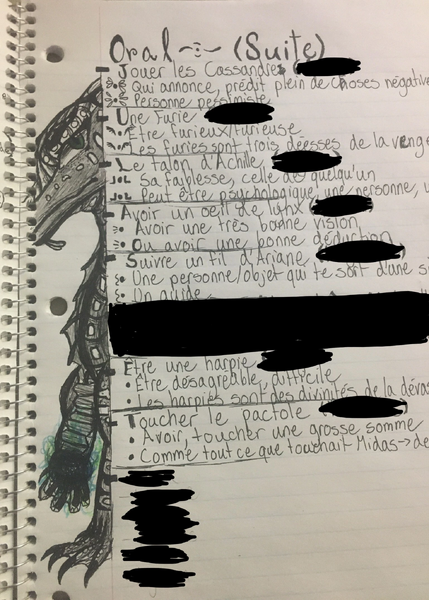 Oral (Suite)
Jouer les Cassandres
• Qui annonce, prédit plein de choses négative
• Personne pessimiste
Une Furie
• Être furieux/furieuse
• Les furies sont trois déesses de la venge
Le talon d'Achille
• Sa faiblesse, celle de quelqu'un
• Peut être psychologique, une personne, u
Avoir un oeil de lynx
• Avoir une très bonne vision
• Ou avoir une bonne déduction
Suivre un fil d'Ariane
• Une personne/objet qui te sort d'une s
• Un guide
Être une harpie
• Être désagréable, difficile
• Les harpies sont des divinités de la dévas
Toucher le pactole
• Avoir, toucher une grosse somme
• Comme tout ce que touchait Midas -> de